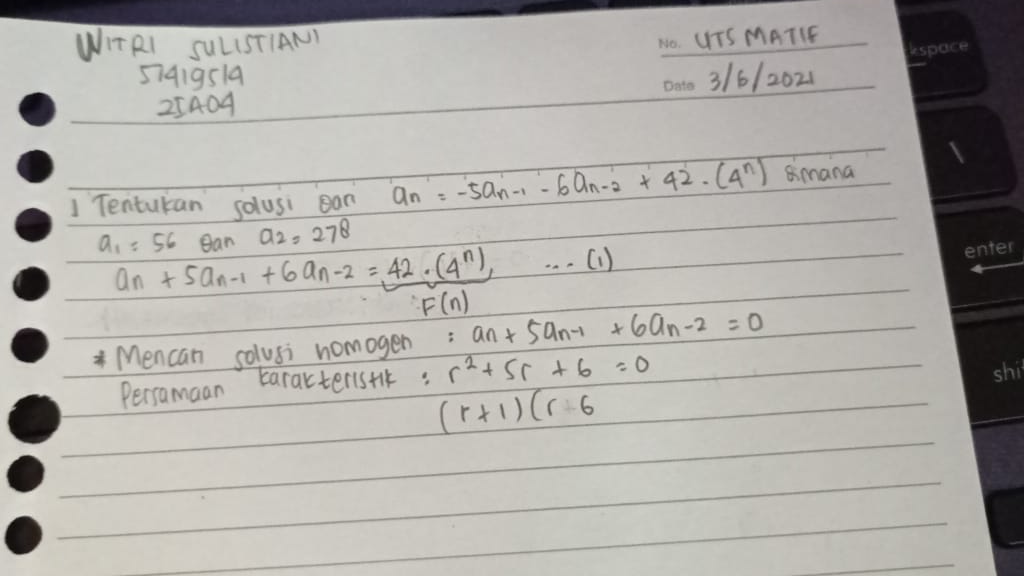 WITRI SULISTIANI
57419514
2IA04
No. UTS MATIF
Date 3/6/2021
1 Tentukan solusi dari an = -5an-1 - 6an-2 + 42 . (4ⁿ) dimana
a1 = 56 dan a2 = 278
an + 5an-1 + 6an-2 = 42 . (4ⁿ), ... (1)
F(n)
* Mencari solusi homogen : an + 5an-1 + 6an-2 = 0
Persamaan karakteristik : r² + 5r + 6 = 0
(r+1) (r+6
kspace
\
enter
shi